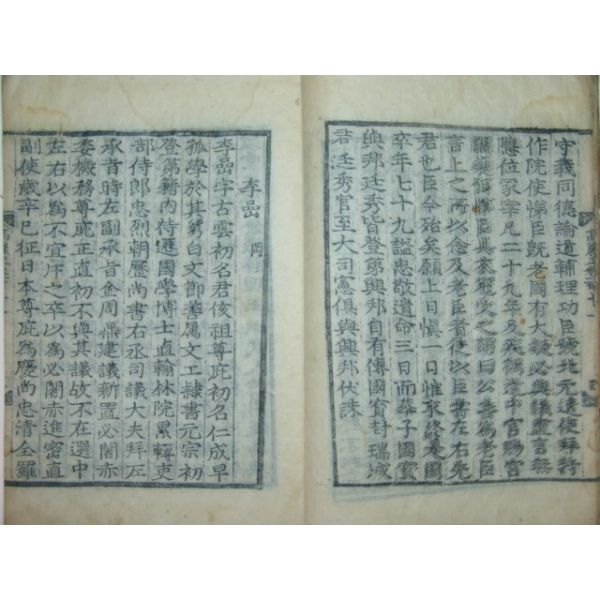 守義同德論道輔理功臣號北元遣使拜將
作院使悌臣旣老國有大疑必與議盡言無
隱位冢宰凡二十九年及疾稱遣中官賜宮
藥悌臣具衣冠受之謂曰公等爲老臣
言上之所以念及老臣者徒以臣嘗在左右先
君也臣今殆矣願上日愼一日惟永終是圖
卒年七十九謚忠敬遺命三日而葬子國寶
興邦廷秀皆登第興邦自有傳國寶封瑞城
君廷秀官至大司憲俱與興邦伏誅
李嵒 岡
李嵒字古雲初名君侅祖尊庇初名仁成早
孤學於其舅白文節善屬文工隸書元宗初
登第籍內侍遷國學博士直翰林院累轉吏
部侍郞忠烈朝歷尙書右丞司議大夫拜左
承旨時左副承旨金周鼎建議新置必闍赤
委機務尊庇正直初不與其議故不在選中
左右以爲不宜斥之卒以爲必闍赤進密直
副使歲辛巳征日本尊庇爲慶尙忠淸全羅